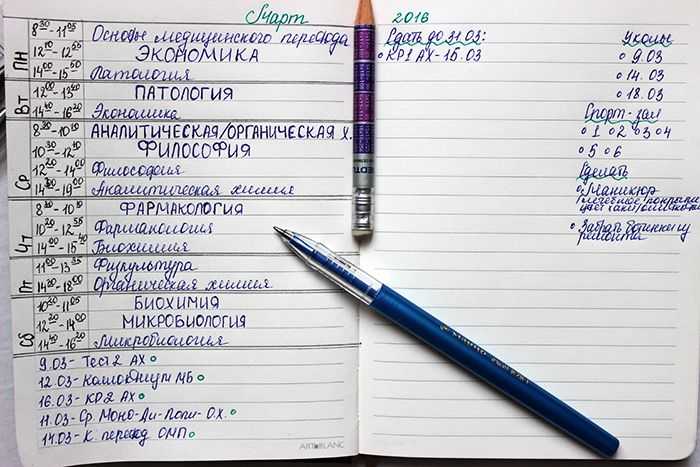 Март 2016
ПН
8 30 - 11 05 Основы медицинского перевода
12 10 - 12 55 ЭКОНОМИКА
14 00 - 15 50 Патология
Вт
12 00 - 13 40 ПАТОЛОГИЯ
14 40 - 16 20 Экономика
Ср
8 30 - 10 10 АНАЛИТИЧЕСКАЯ/ОРГАНИЧЕСКАЯ Х.
10 30 - 12 10 ФИЛОСОФИЯ
12 20 - 14 00 Философия
14 40 - 19 00 Аналитическая химия
Чт
8 30 - 10 10 ФАРМАКОЛОГИЯ
10 20 - 12 55 Фармакология
14 00 - 15 40 Биохимия
Пт
11 00 - 13 35 Физкультура
14 20 - 18 00 Органическая химия
Сб
10 20 - 11 05 БИОХИМИЯ
12 20 - 14 00 МИКРОБИОЛОГИЯ
14 40 - 16 20 Микробиология
9.03 - Тест 2 АХ
12.03 - Коллоквиум МБ
16.03 - КР 2 АХ
11.03 - Ср Моно-Ди-Поли- ОХ.
14.03 - К перевод ОМП
ARTBLANC
Сдать до 31.03:
КР1 АХ - 15.03
Уколы
9.03
14.03
18.03
Спорт-зал
1 2 3 4
5 6
Сделать
Маникюр
Забрать ботинки из
ремонта